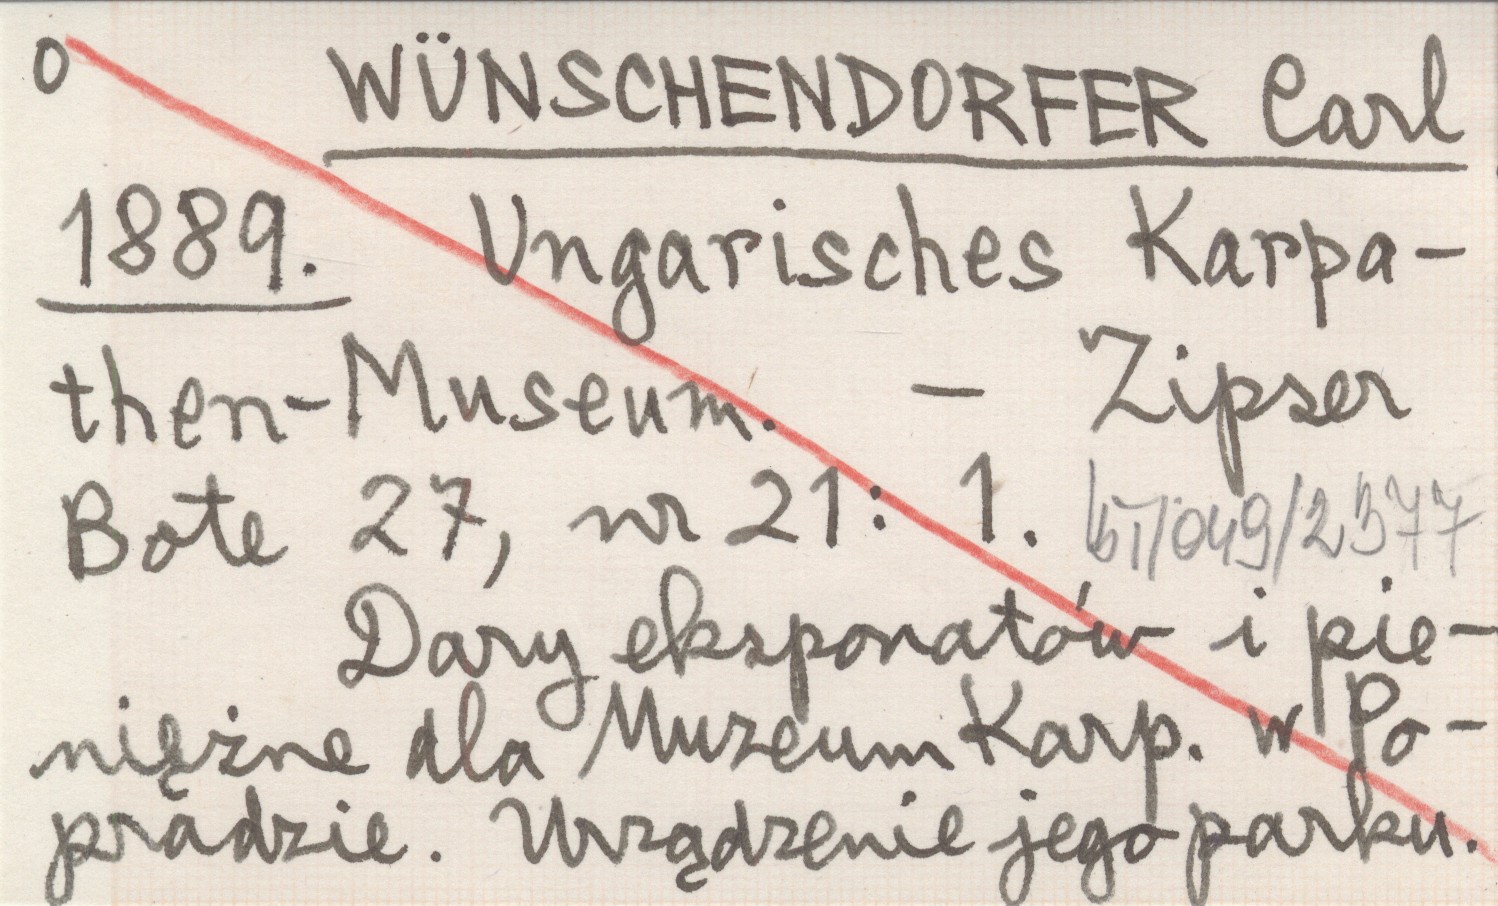 o WÜNSCHENDORFER Carl
1889. Ungarisches Karpa-
then-Museum. - Zipser
Bote 27, nr 21: 1. /049/2377
Dary eksponatów i pie-
niężne dla Muzeum Karp. w Po-
pradzie. Urządzenie jego parku.